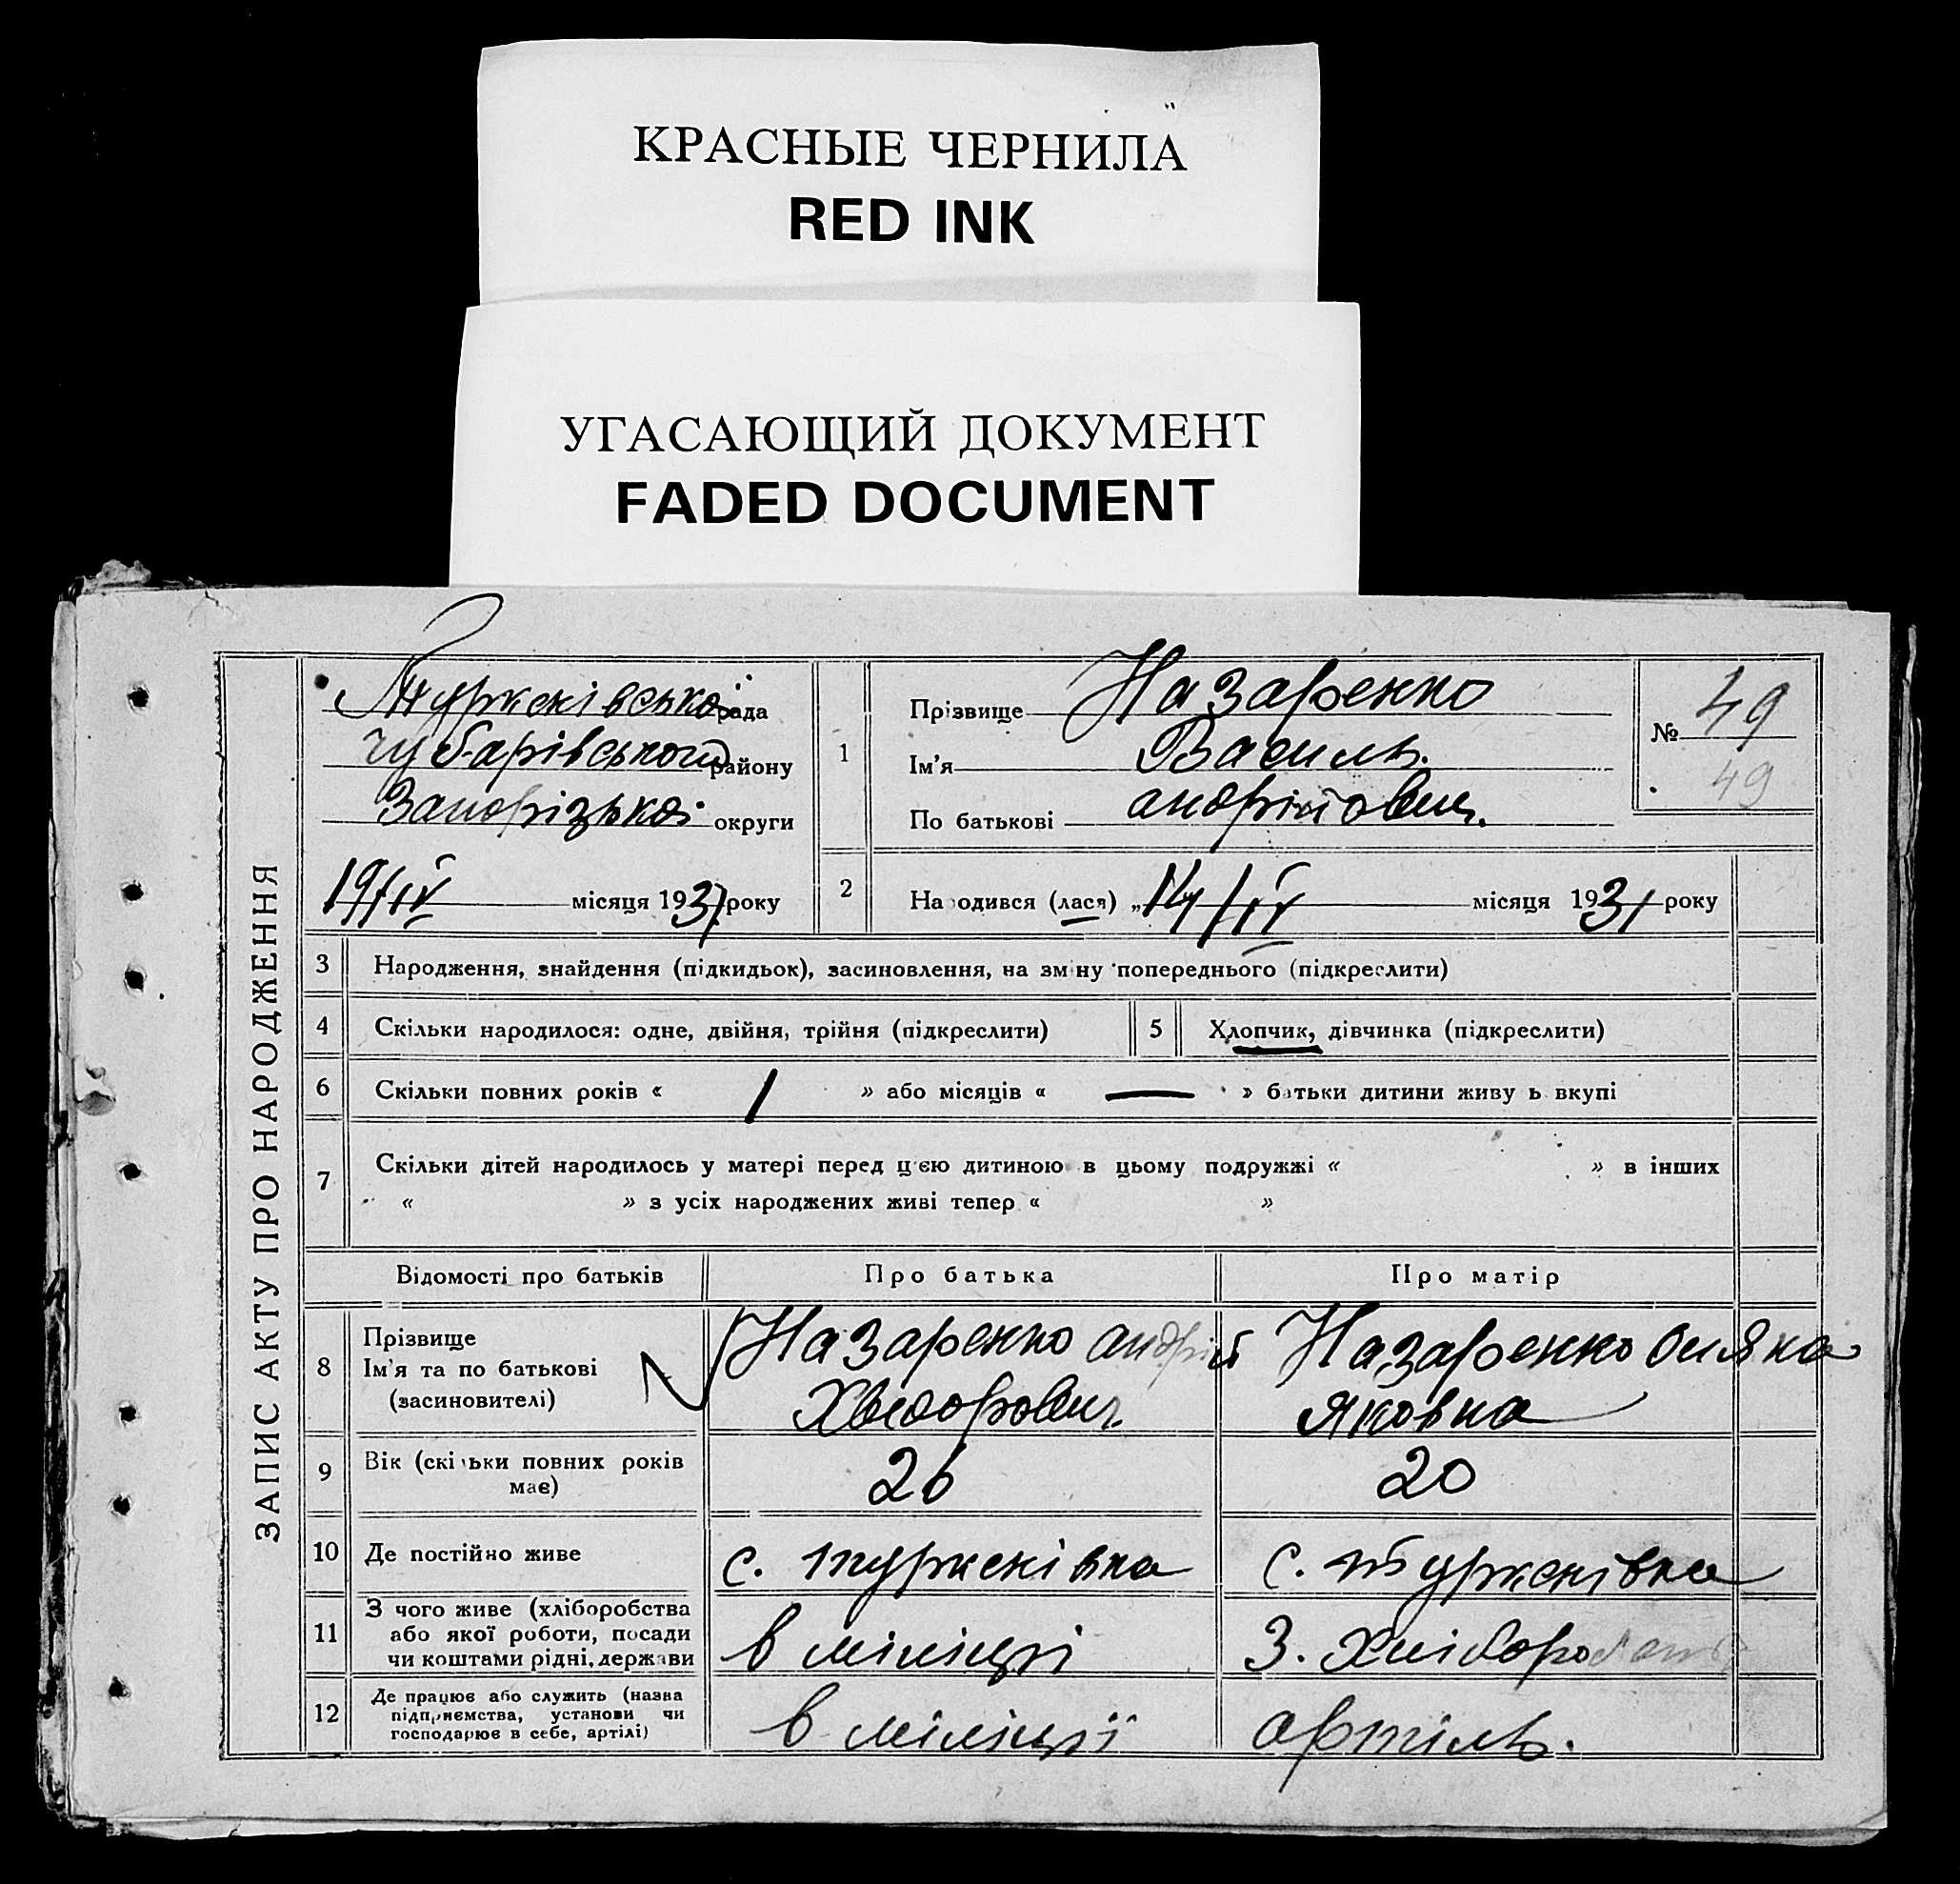 КРАСНЫЕ ЧЕРНИЛА
RED INK
УГАСАЮЩИЙ ДОКУМЕНТ
FADED DOCUMENT
ЗАПИС АКТУ ПРО НАРОДЖЕННЯ
Туркенівської рада
Чубарівського району
Запорізької округи
19/IV місяця 1931 року
1
Прізвище Назаренко
Ім'я Василь.
По батькові Андрійович.
№ 49
49
2
Народився (лася) „14/IV місяця 1931 року
3 Народження, знайдення (підкидьок), засиновлення, на зміну попереднього (підкреслити)
4 Скільки народилося: одне, двійня, трійня (підкреслити) 5 Хлопчик, дівчинка (підкреслити)
6 Скільки повних років « 1 » або місяців « — » батьки дитини живуть вкупі
7 Скільки дітей народилось у матері перед цією дитиною в цьому подружжі « » в інших
« » з усіх народжених живі тепер « »
Відомості про батьків Про батька Про матір
8 Прізвище
Ім'я та по батькові
(засиновителі)
Назаренко Андрій
Хведорович
Назаренко
Яковна
9 Вік (скільки повних років
має)
26 20
10 Де постійно живе с. Туркенівка с. Туркенівка
11 З чого живе (хліборобства
або якої роботи, посади
чи коштами рідні, держави
в міліції З.
12 Де працює або служить (назва
підприємства, установи чи
господарює в себе, артілі)
в міліції артіль.